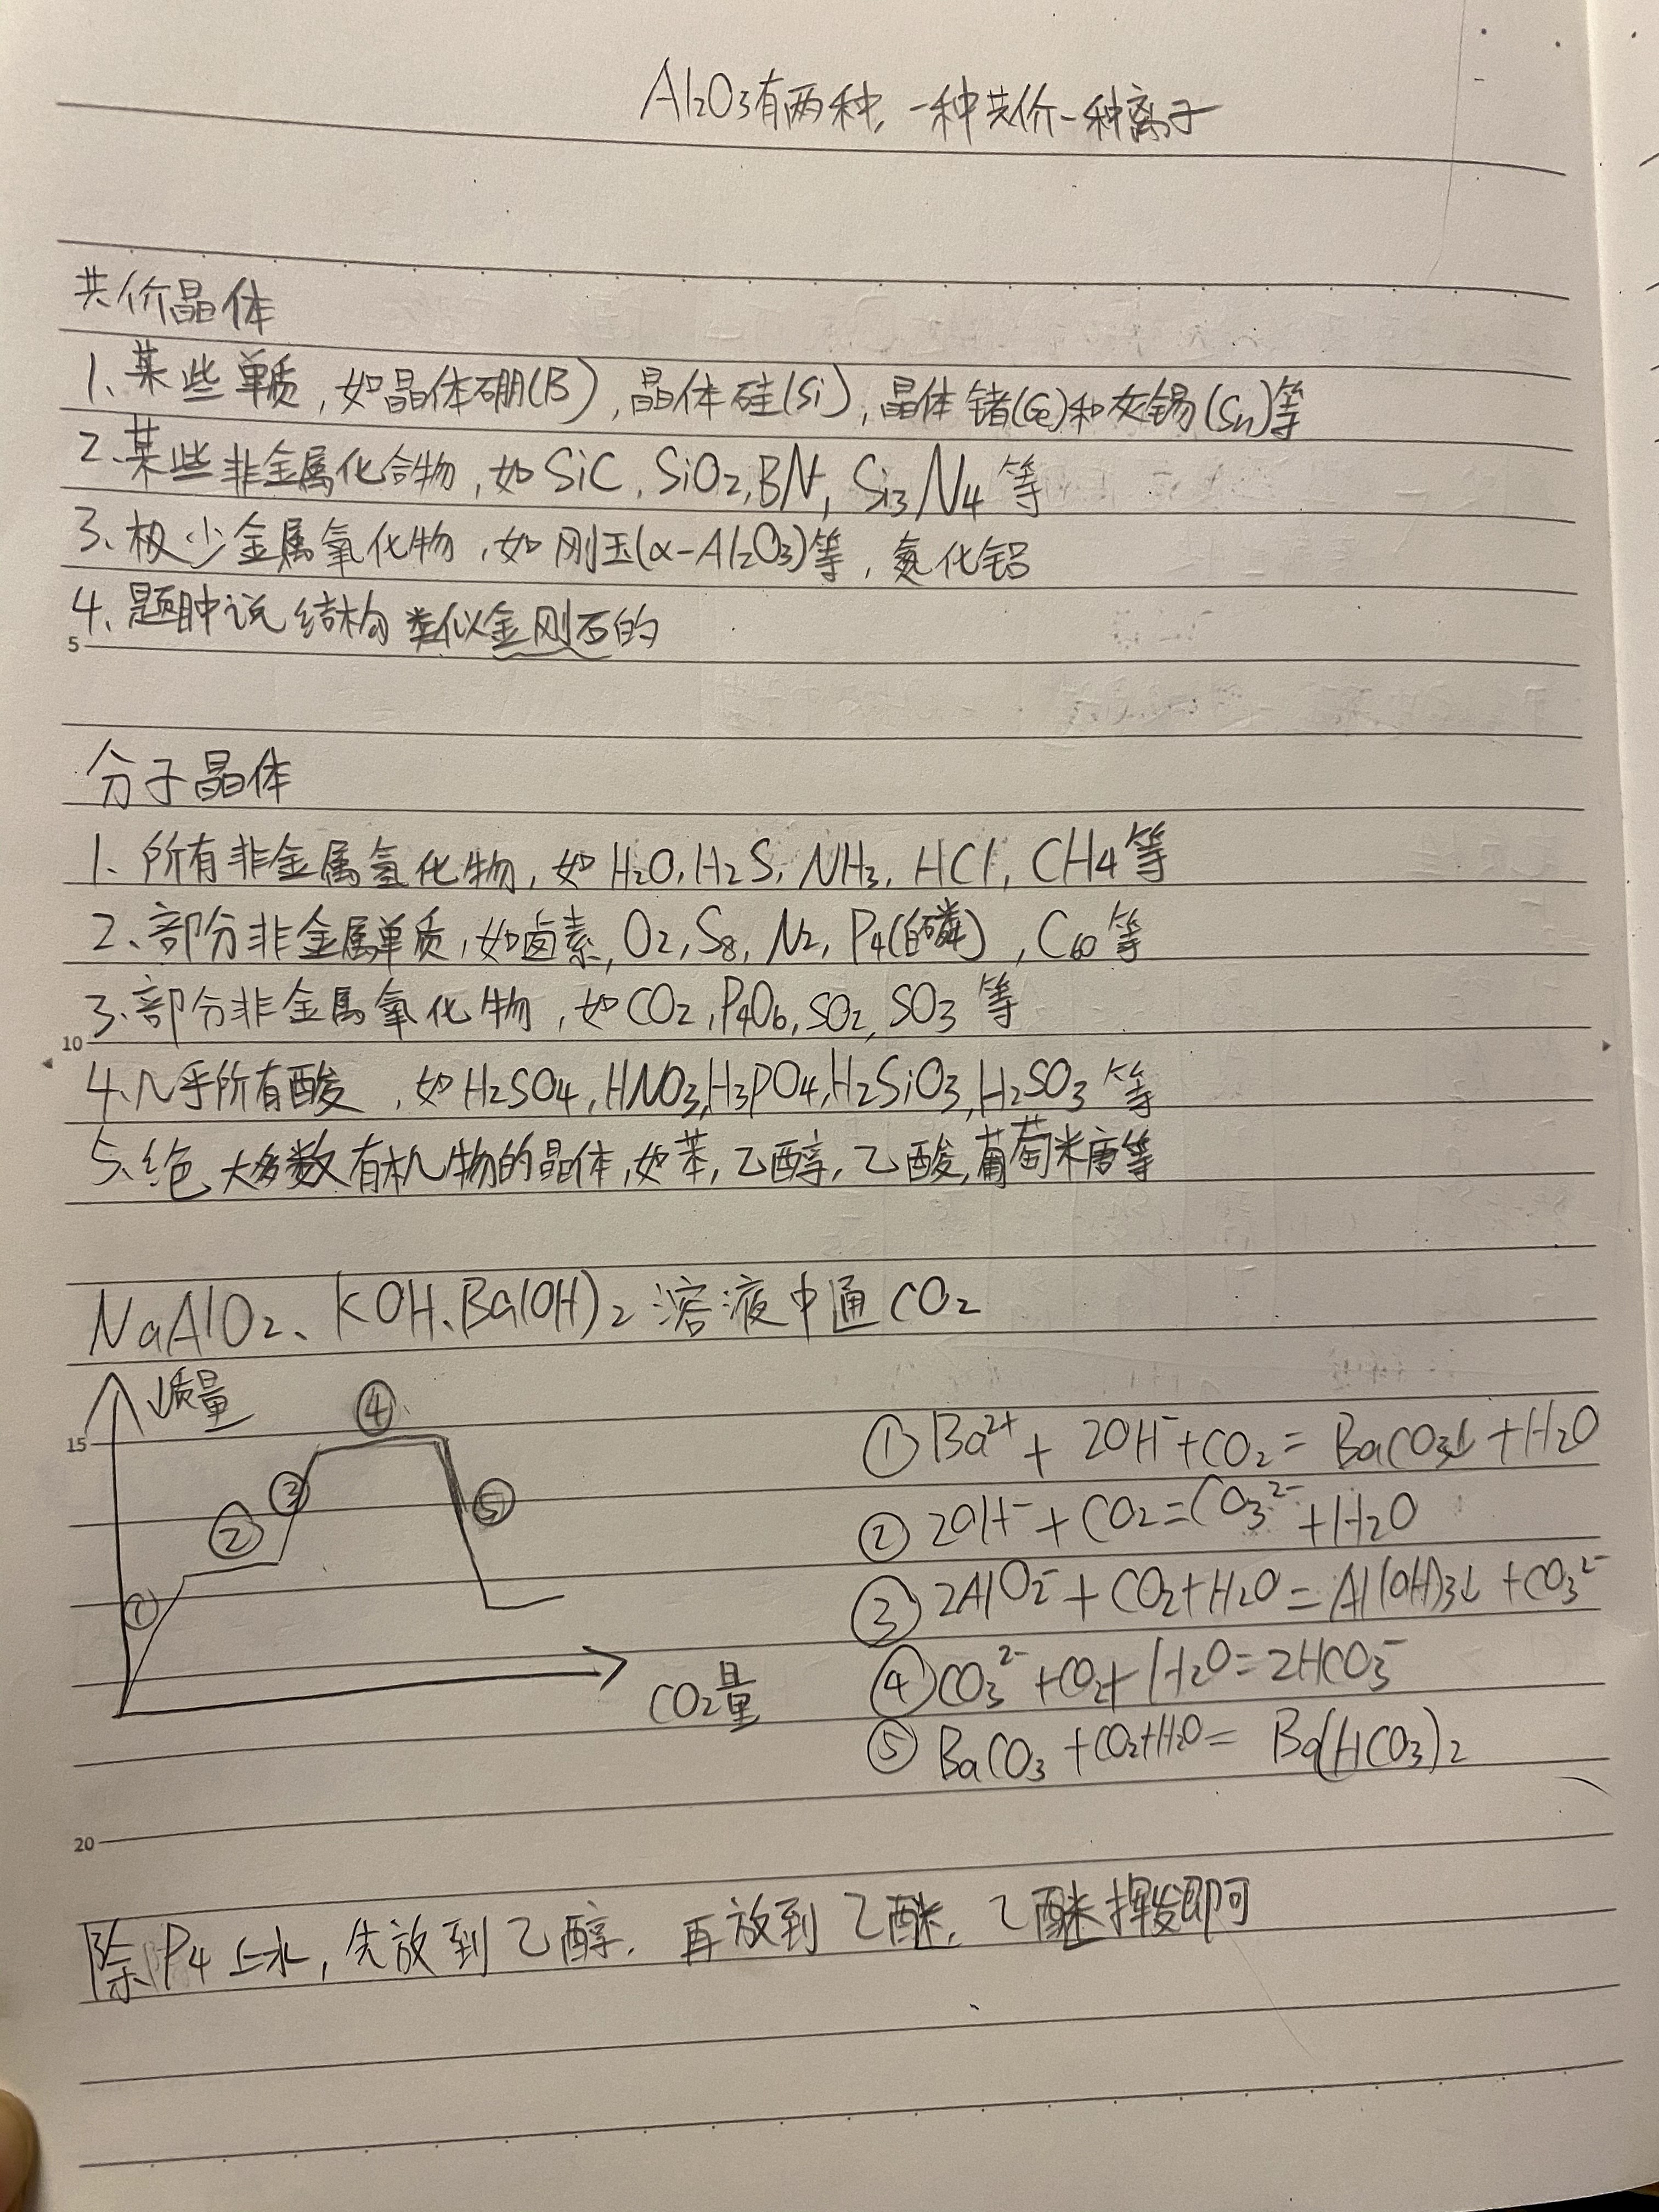 Al₂O₃有两种,一种共价一种离子
共价晶体
1、某些单质,如晶体硼(B),晶体硅(Si),晶体锗(Ge)和灰锡(Sn)等
2、某些非金属化合物,如SiC,SiO₂,BN,Si₃N₄等
3、极少金属氧化物,如刚玉(α-Al₂O₃)等,氮化铝
5
4、题中说结构类似金刚石的
分子晶体
1、所有非金属氢化物,如H₂O,H₂S,NH₃,HCl,CH₄等
2、部分非金属单质,如卤素,O₂,S₈,N₂,P₄(白磷),C₆₀等
10
3、部分非金属氧化物,如CO₂,P₄O₆,SO₂,SO₃等
4、几乎所有酸,如H₂SO₄,HNO₃,H₃PO₄,H₂SiO₃,H₂SO₃等
5、绝大多数有机物的晶体,如苯,乙醇,乙酸,葡萄糖等
NaAlO₂、KOH、Ba(OH)₂溶液中通CO₂
15
质量
① Ba²⁺ + 2OH⁻ + CO₂ = BaCO₃↓ + H₂O
② 2OH⁻ + CO₂ = CO₃²⁻ + H₂O
③ 2AlO₂⁻ + CO₂ + H₂O = Al(OH)₃↓ + CO₃²⁻
④ CO₃²⁻ + CO₂ + H₂O = 2HCO₃⁻
⑤ BaCO₃ + CO₂ + H₂O = Ba(HCO₃)₂
① ② ③ ④ ⑤
CO₂量
20
除P₄上水,先放到乙醇,再放到乙醚,乙醚